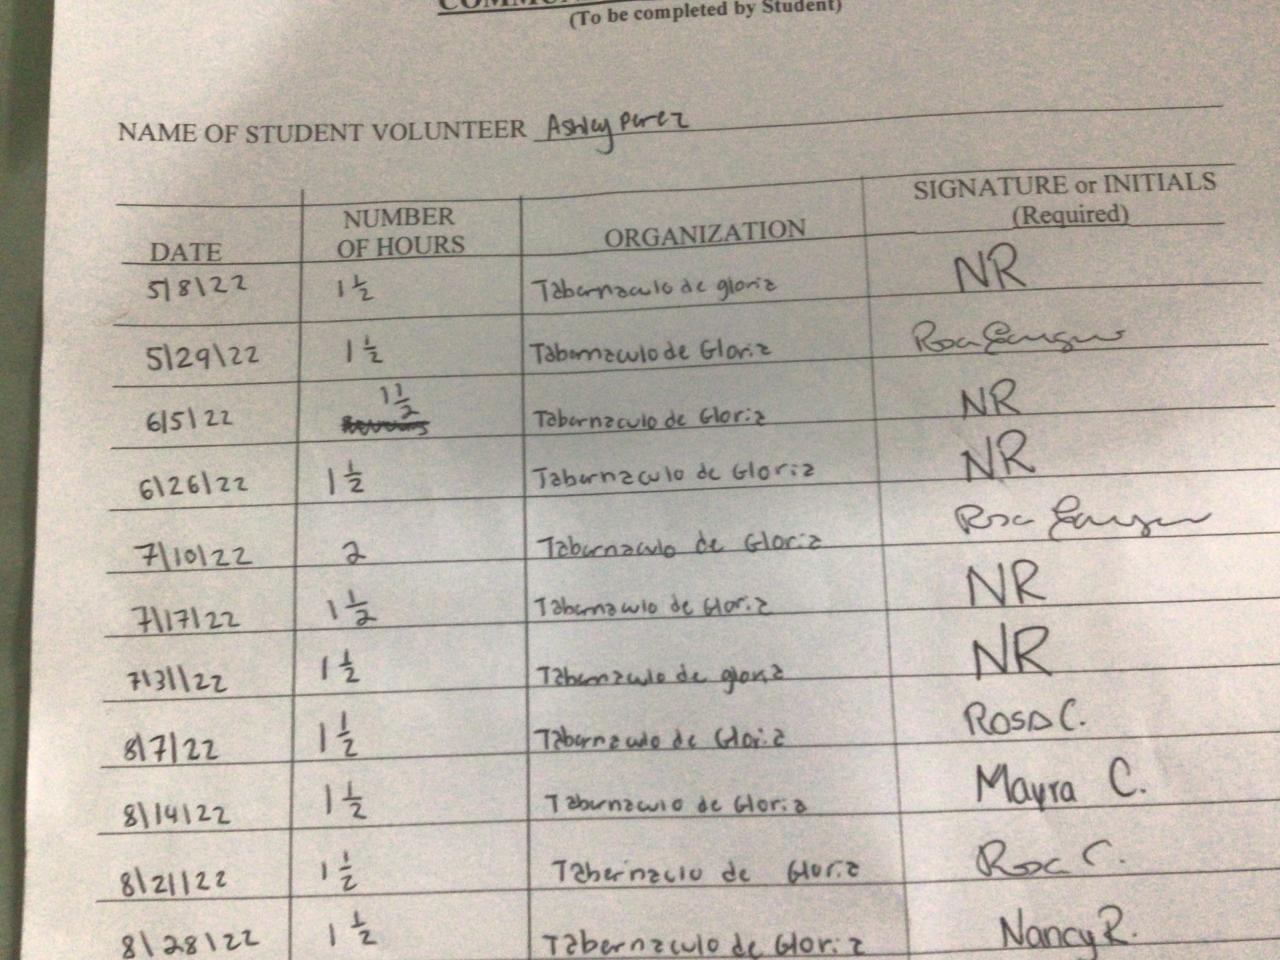 (To be completed by Student)
NAME OF STUDENT VOLUNTEER Ashley Perez
DATE NUMBER OF HOURS ORGANIZATION SIGNATURE or INITIALS (Required)
5/8/22 1 1/2 Tabernaculo de gloria NR
5/29/22 1 1/2 Tabernaculo de Gloria Rosa
6/5/22 1 1/2 Tabernaculo de Gloria NR
6/26/22 1 1/2 Tabernaculo de Gloria NR
7/10/22 2 Tabernaculo de Gloria Rosa
7/17/22 1 1/2 Tabernaculo de Gloria NR
7/31/22 1 1/2 Tabernaculo de gloria NR
8/7/22 1 1/2 Tabernaculo de Gloria Rosa C.
8/14/22 1 1/2 Tabernaculo de Gloria Mayra C.
8/21/22 1 1/2 Tabernaculo de Gloria Rosa C.
8/28/22 1 1/2 Tabernaculo de Gloria Nancy R.